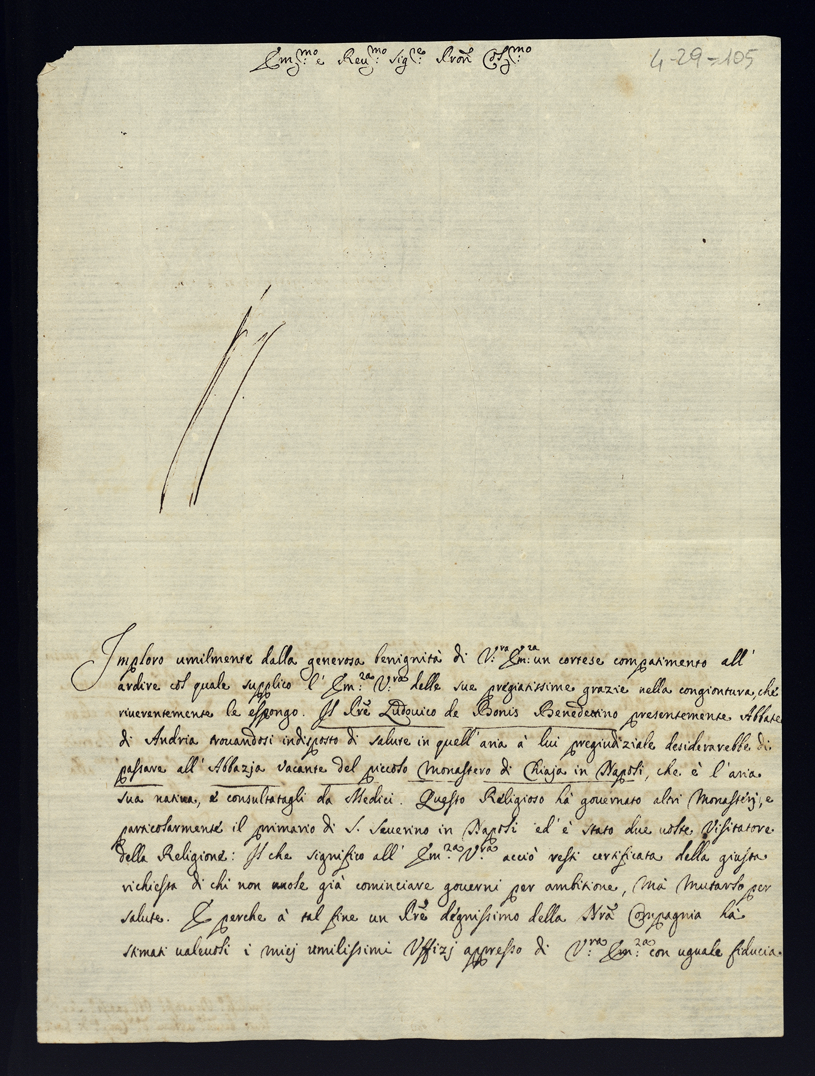 Em.mo e Reu.mo Sig.re Pron Col.mo
4-29=105
Imploro umilmente dalla generosa benignità di V.ra Em.za un cortese compatimento all'
ardire col quale supplico l'Em.za V.ra delle sue pregiatissime grazie nella congiontura, che
riuerentemente le espongo. Il Pre Ludouico de Bonis Benedettino presentemente Abbate
di Andria trouandosi indisposto di salute in quell'aria à lui pregiudiziale desiderarebbe di
passare all'Abbazja vacante del piccolo Monastero di Chiaja in Napoli, che è l'aria
sua natiua, e consultatagli da Medici. Questo Religioso hà gouernato altri Monasterj, e
particolarmente il primario di S. Seuerino in Napoli ed è stato due uolte Visitatore
della Religione: Il che significo all'Em.za V.ra acciò resti certificata della giusta
richiesta di chi non uuole già cominciare gouerni per ambitione, mà mutarlo per
salute. E perche à tal fine un Pre degnissimo della Nra Compagnia hà
stimati valeuoli i miej umilissimi Uffizj appresso di V.ra Em.za con uguale fiducia